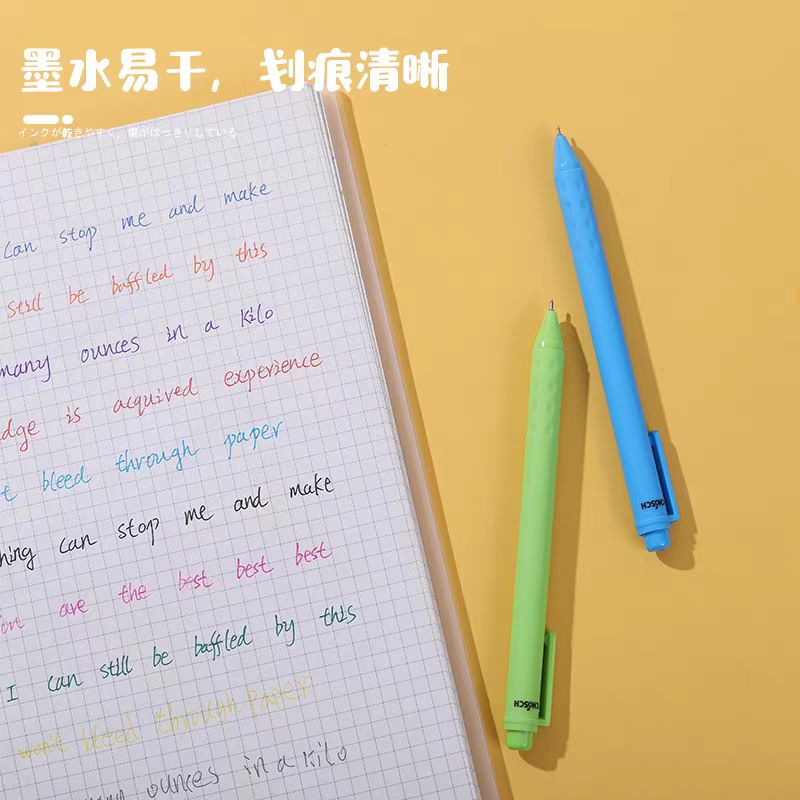 墨水易干，划痕清晰
インクが乾きやすく、傷がはっきりしている
can stop me and make
still be baffled by this
many ounces in a kilo
dge is acquired experience
t bleed through paper
hing can stop me and make
on are the best best best
I can still be baffled by this
won't bleed through paper
ounces in a kilo
CHOSCH
CHOSCH